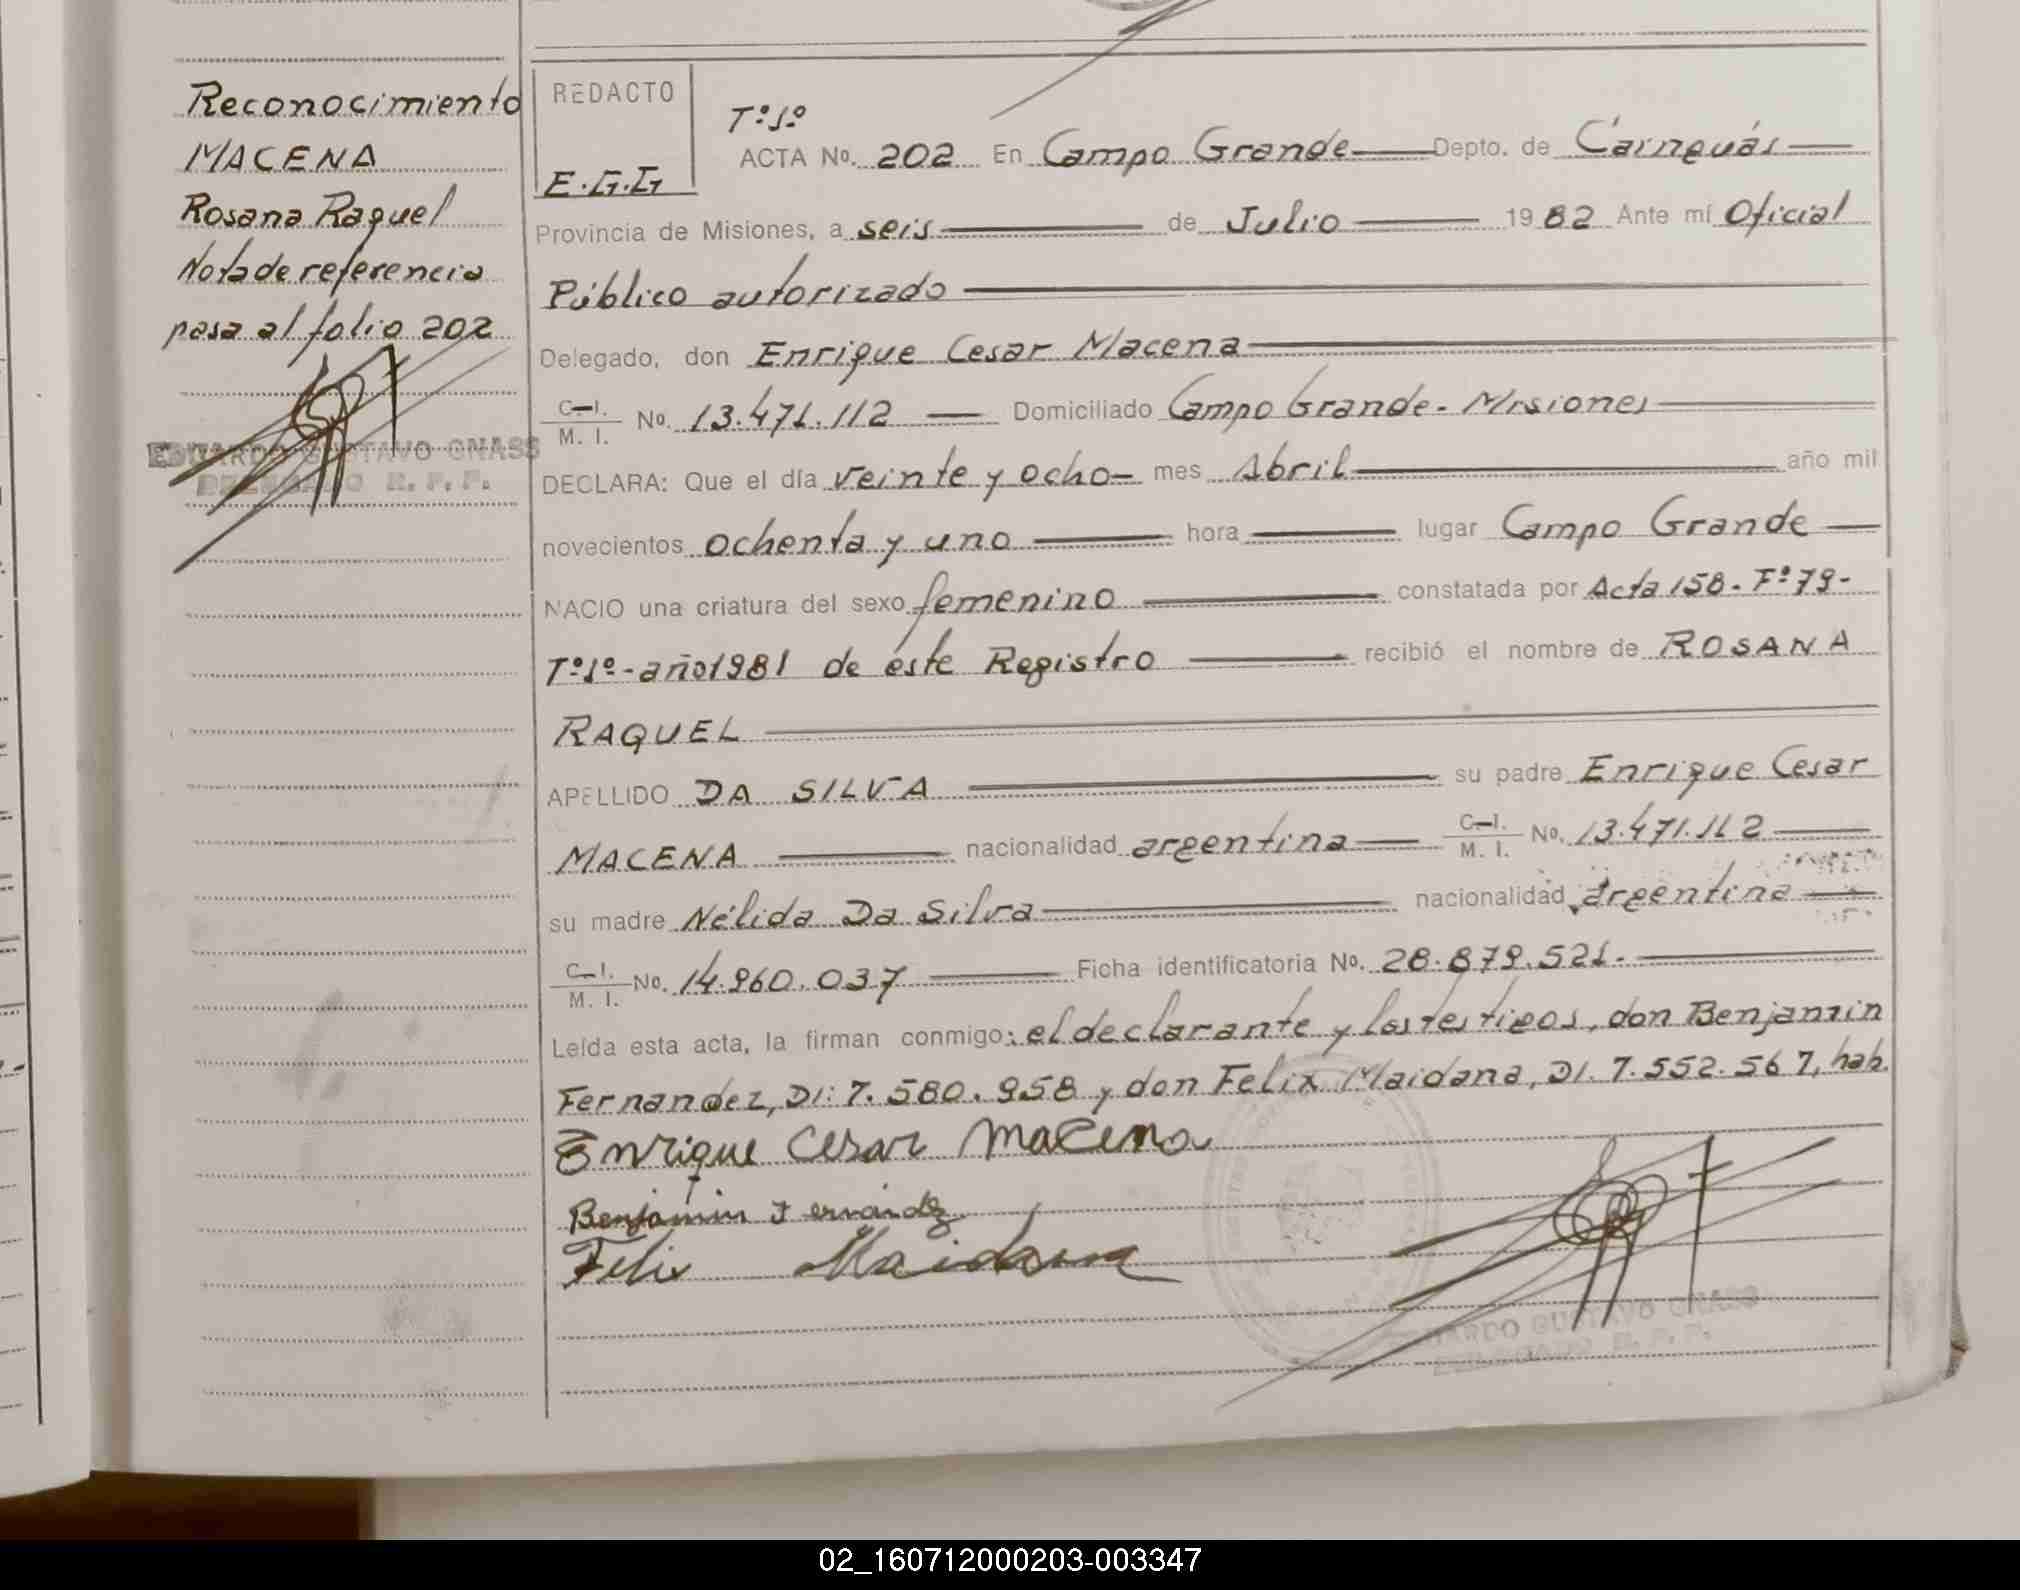 Reconocimiento
MACENA
Rosana Raquel
Nota de referencia
pasa al folio 202
EDUARDO GUSTAVO GNASS
DELEGADO R. P. P.
REDACTO
E.G.G
Tº.1º
ACTA No. 202 En Campo Grande Depto. de Cainguás
Provincia de Misiones, a seis de Julio 1982 Ante mí Oficial
Público autorizado
Delegado, don Enrique Cesar Macena
C.I. M. I. No. 13.471.112 Domiciliado Campo Grande - Misiones
DECLARA: Que el día veinte y ocho mes Abril año mil
novecientos ochenta y uno hora lugar Campo Grande
NACIO una criatura del sexo femenino constatada por Acta 158 - Fº 79 -
Tº.1º - año 1981 de éste Registro recibió el nombre de ROSANA
RAQUEL
APELLIDO DA SILVA su padre Enrique Cesar
MACENA nacionalidad argentina C.I. M. I. No. 13.471.112
su madre Nélida Da Silva nacionalidad argentina
C.I. M. I. No. 14.960.037 Ficha identificatoria No. 28.879.521.-
Leída esta acta, la firman conmigo: el declarante y los testigos, don Benjamin
Fernandez, DI: 7.580.958 y don Felix Maidana, DI. 7.552.567, hab.
Enrique Cesar Macena
Benjamin Fernández
Felix Maidana
EDUARDO GUSTAVO GNASS
DELEGADO R. P. P.
02_160712000203-003347